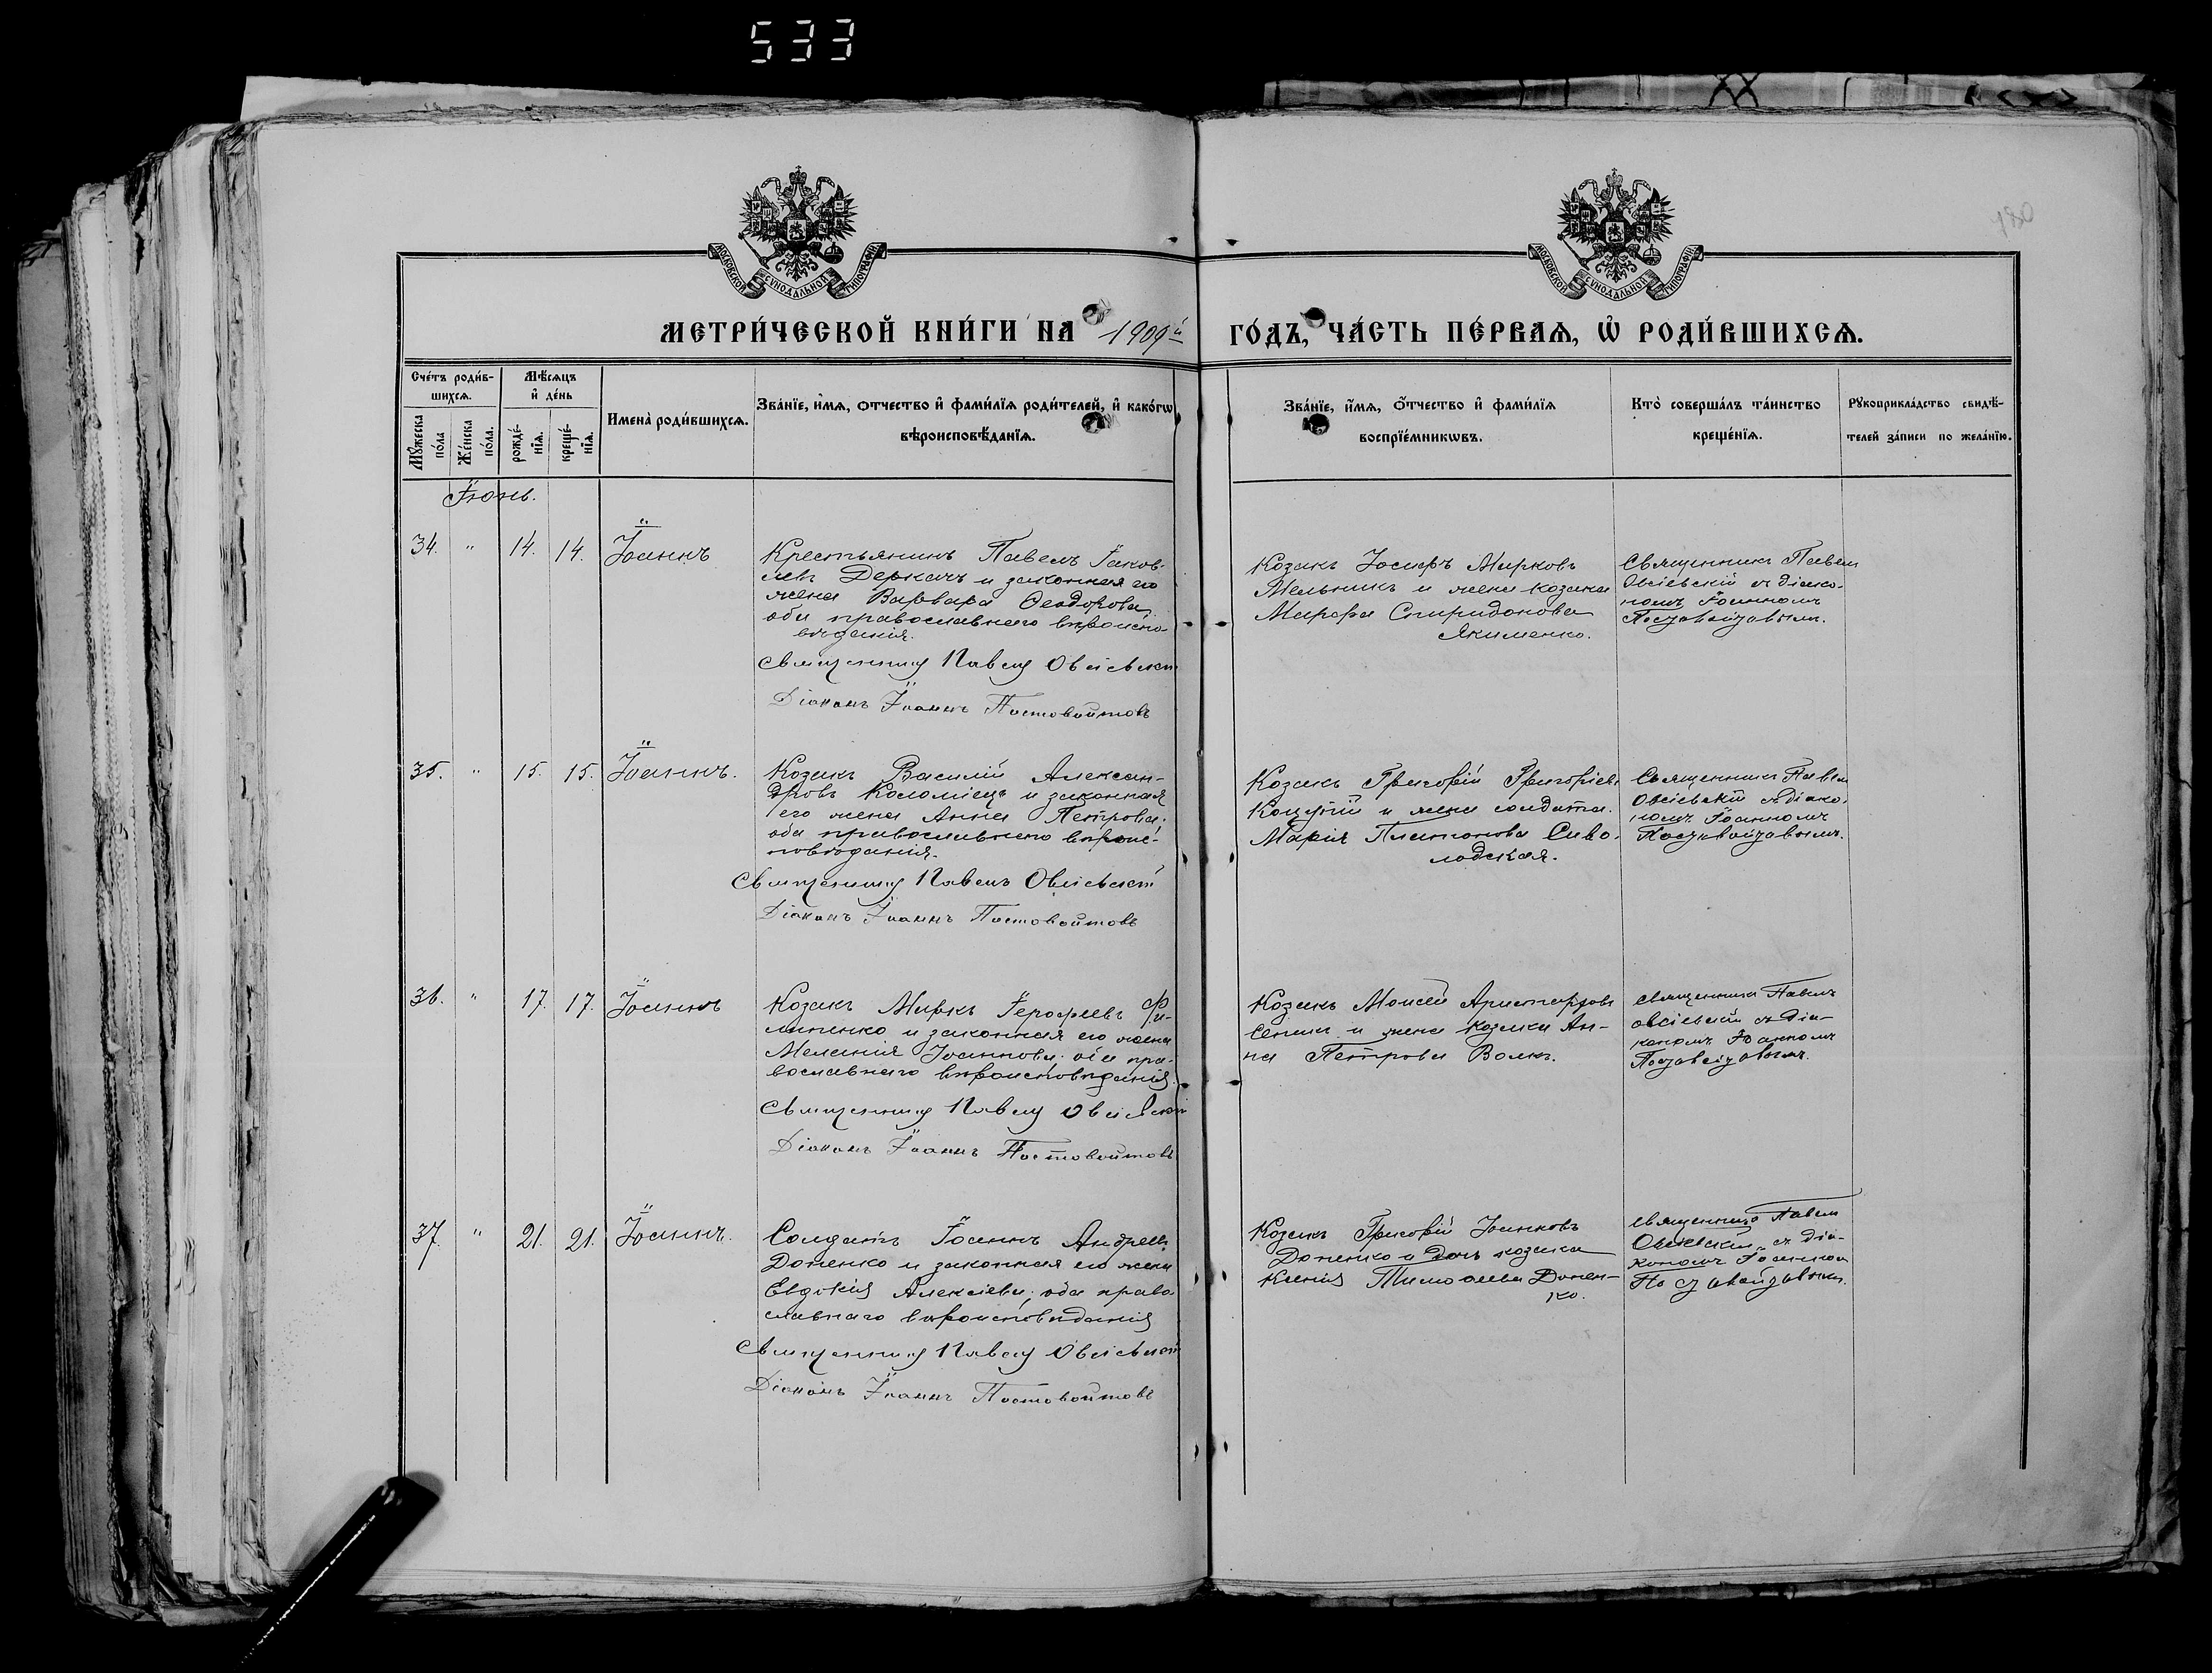 533
180
МОСКОВСКОЙ СѴНОДАЛЬНОЙ ТИПОГРАФІИ
МОСКОВСКОЙ СѴНОДАЛЬНОЙ ТИПОГРАФІИ
МЕТРИ́ЧЕСКОЙ КНИ́ГИ НА 1909й ГО́ДЪ, ЧА́СТЬ ПЕ́РВАЯ, Ѡ РОДИ́ВШИХСЯ.
Сче́тъ роди́в-
шихся.
Мꙋ́жеска по́ла
Же́нска по́ла.
Мѣ́сяцъ и де́нь
рожде́-
нїя.
креще́-
нїя.
Имена̀ роди́вшихся.
Зва́нїе, и́мя, отчество и фами́лїя роди́телей, и како́гѡ
вѣроисповѣ́данїя.
Зва́нїе, и́мя, о́тчество и фами́лїя
воспрїе́мникѡвъ.
Кто̀ соверша́лъ та́инство
креще́нїя.
Рꙋкоприкла́дство свидѣ́-
телей за́писи по жела́нїю.
Іюнь.
34. " 14. 14. Іоаннъ
Крестьянинъ Павелъ Іаков-
левъ Деркачъ и законная его
жена Варвара Ѳеодорова,
оба православнаго вѣроиспо-
вѣданія.
Священникъ Павелъ Овсіевскій
Діаконъ Іоаннъ Постовойтовъ
Козакъ Іосифъ Марковъ
Мельникъ и жена козака
Марфа Спиридонова
Якименко.
Священникъ Павелъ
Овсіевскій съ діако-
номъ Іоанномъ
Постовойтовымъ.
35. " 15. 15. Іоаннъ.
Козакъ Василій Алексан-
дровъ Коломіецъ и законная
его жена Анна Петрова.
оба православнаго вѣроис-
повѣданія.
Священникъ Павелъ Овсіевскій
Діаконъ Іоаннъ Постовойтовъ
Козакъ Григорій Григоріевъ
и жена солдата
Марія Платонова Сиво-
лодская.
Священникъ Павелъ
Овсіевскій съ діако-
номъ Іоанномъ
Постовойтовымъ.
36. " 17. 17. Іоаннъ
Козакъ Маркъ Іерофеевъ Фи-
липенко и законная его жена
Меланія Іоаннова. оба пра-
вославнаго вѣроисповѣданія.
Священникъ Павелъ Овсіевскій
Діаконъ Іоаннъ Постовойтовъ
Козакъ Моисей Аристарховъ
и жена козака Ан-
на Петрова Волкъ.
Священникъ Павелъ
Овсіевскій съ діа-
кономъ Іоанномъ
Постовойтовымъ.
37. " 21. 21. Іоаннъ.
Солдатъ Іоаннъ Андреевъ
Доненко и законная его жена
Евдокія Алексіева; оба право
славнаго вѣроисповѣданія
Священникъ Павелъ Овсіевскій
Діаконъ Іоаннъ Постовойтовъ
Козакъ Григорій Іоанновъ
Доненко и дочь козака
Ксенія Тимоѳеева Донен-
ко.
Священникъ Павелъ
Овсіевскій съ діа-
кономъ Іоанномъ
Постовойтовымъ.